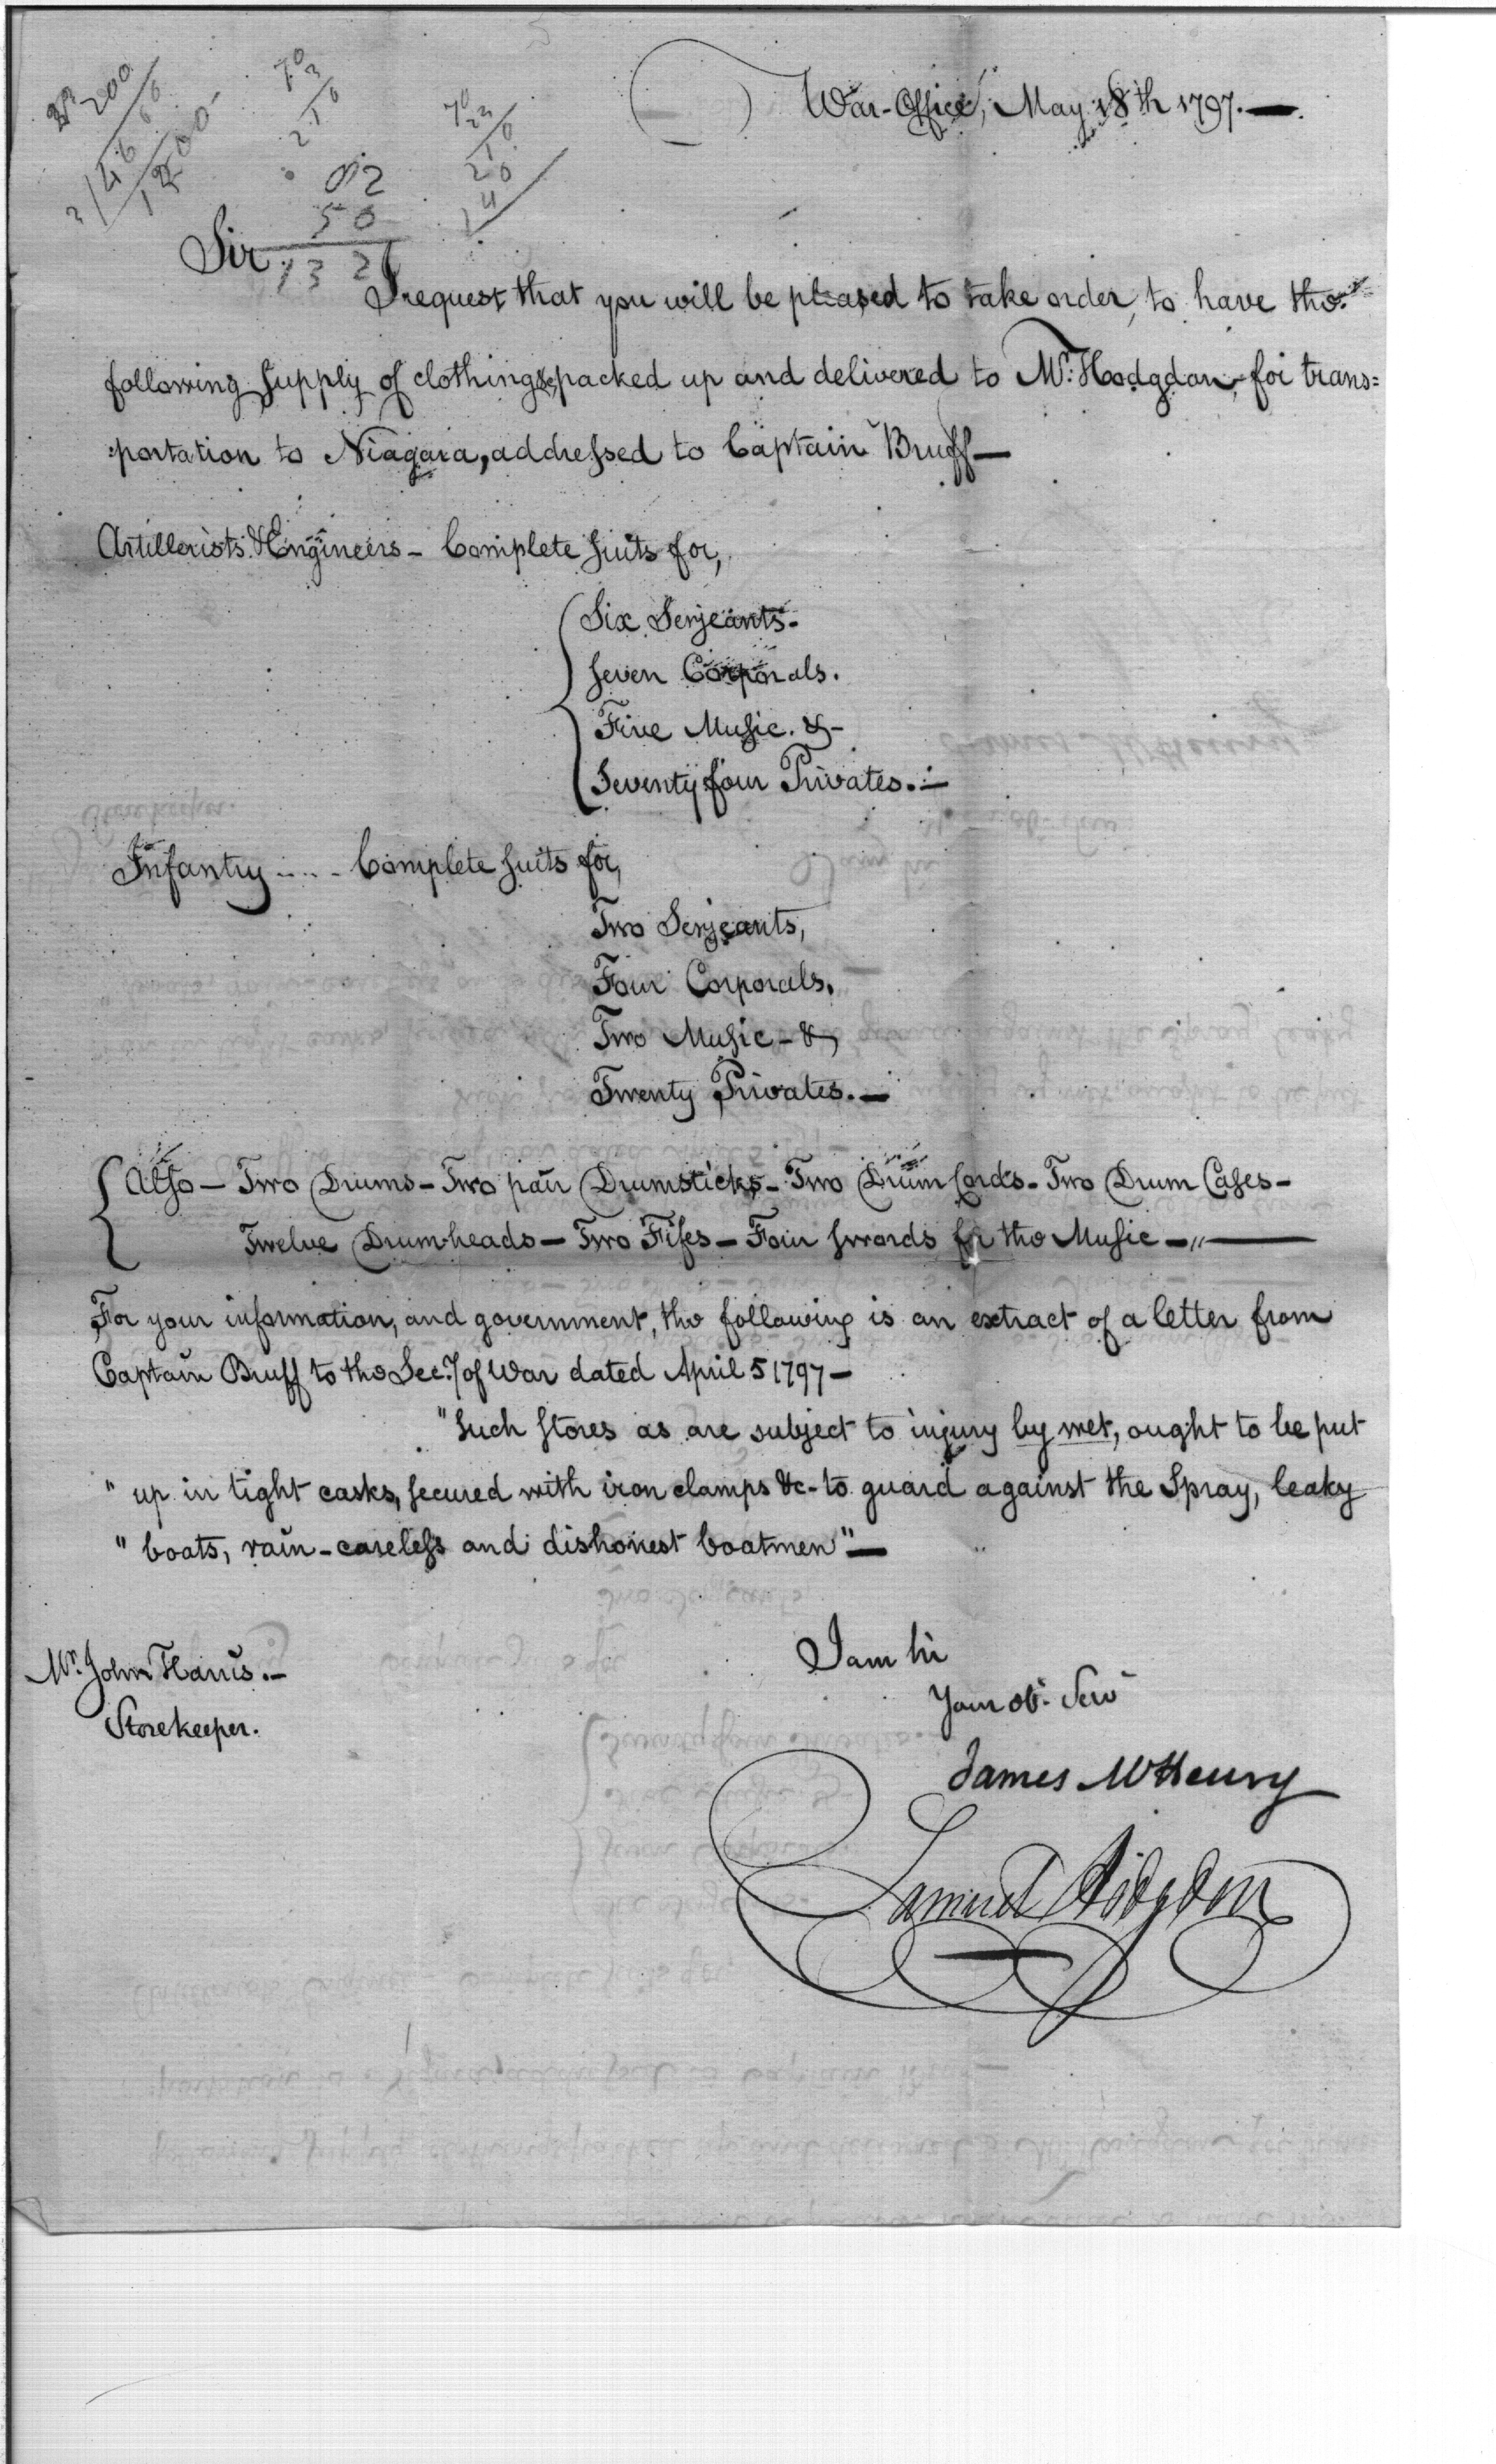 War-Office, May 18th 1797.—
200
70
3
210
70
23
210
92
50
132
Sir
I request that you will be pleased to take order, to have the
following supply of clothing &c packed up and delivered to Mr. Hodgdon, for trans=
:portation to Niagara, addressed to Captain Bruff—
Artillerists & Engineers — Complete suits for,
Six Serjeants.
Seven Corporals.
Five Music. &—
Seventy four Privates.—
Infantry ..... Complete suits for,
Two Serjeants,
Four Corporals,
Two Music — &
Twenty Privates.—
Also — Two Drums — Two pair Drumsticks — Two Drum Cords — Two Drum Cases —
Twelve Drum-heads — Two Fifes — Four swords for the Music —"—
For your information, and government, the following is an extract of a letter from
Captain Bruff to the Secy. of War dated April 5 1797—
"Such stores as are subject to injury by wet, ought to be put
" up in tight casks, secured with iron clamps &c — to guard against the Spray, leaky
" boats, rain — careless and dishonest boatmen"—
I am Sir
Your obt. Servt
Mr. John Harris.—
Storekeeper.
James McHenry
Samuel Hodgdon